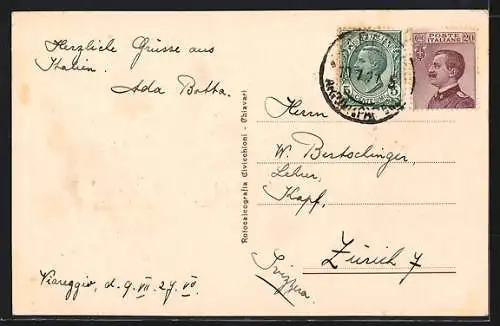 Herzliche Grüsse aus
Italien.
Ada Botta.
Viareggio, d. 9. VII. 27. VO
Rotocalcografia Civicchioni - Chiavari
POSTE ITALIANE
POSTE
ITALIANE
20
Herrn
W. Bertschinger,
Lehrer,
Kapf,
Zürich 7
Svizzera